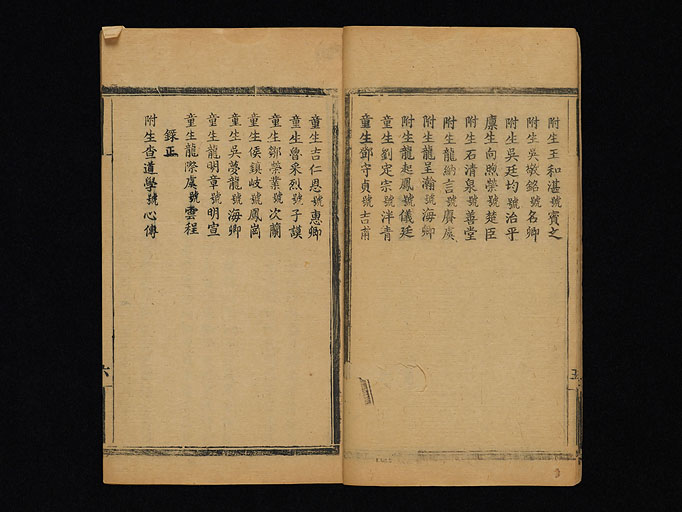 附生王和湛號賓之
附生吳敏銘號名卿
附生吳廷均號治平
廩生向煦榮號楚臣
附生石清泉號善堂
附生龍納言號賡虞
附生龍呈瀚號海卿
附生龍起鳳號儀廷
童生劉定宗號泮青
童生鄧守貞號吉甫
五
童生吉仁恩號惠卿
童生魯采烈號子謨
童生鄒榮業號次蘭
童生侯鎮岐號鳳崗
童生吳夢龍號海卿
童生龍明章號明宣
童生龍際虞號雲程
錄正
附生查道學號心傳
六